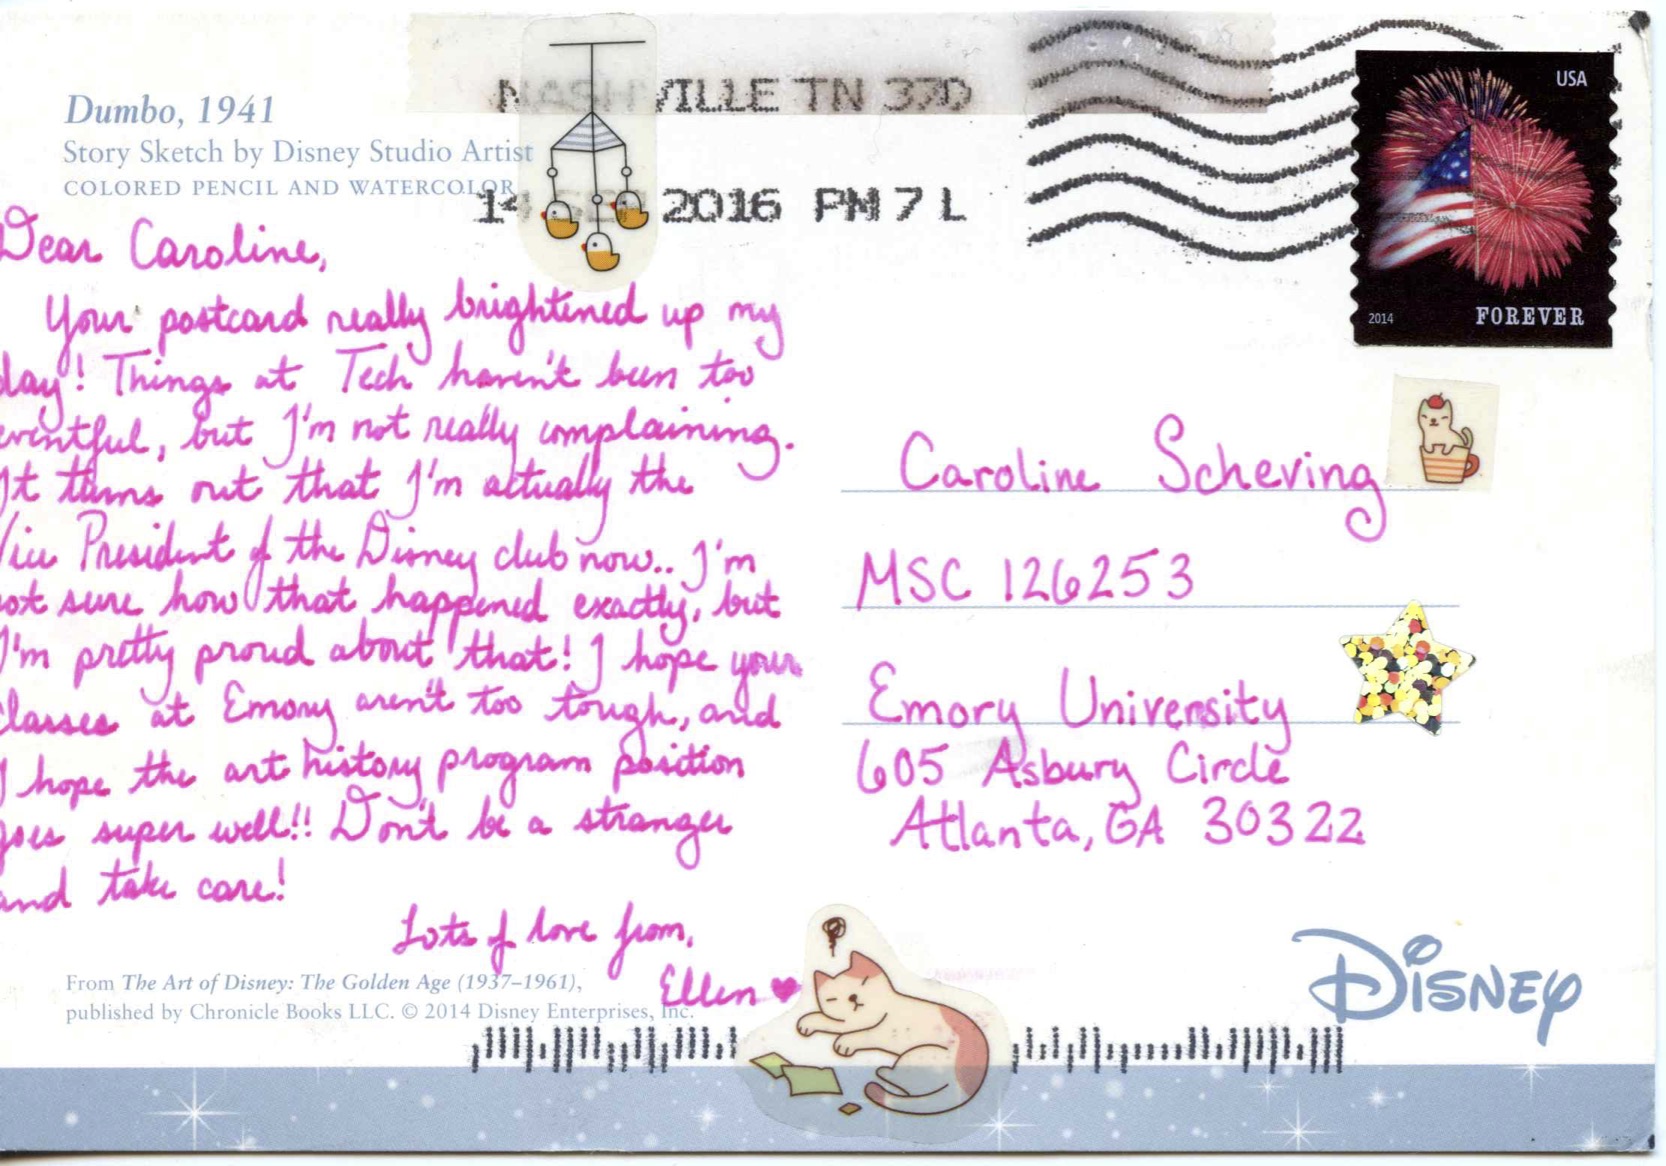 Dumbo, 1941
Story Sketch by Disney Studio Artist
COLORED PENCIL AND WATERCOLOR
NASHVILLE TN 370
14 SEP 2016 PM 7 L
USA
2014 FOREVER
Dear Caroline,
Your postcard really brightened up my
day! Things at Tech haven't been too
eventful, but I'm not really complaining.
It turns out that I'm actually the
Vice President of the Disney club now.. I'm
not sure how that happened exactly, but
I'm pretty proud about that! I hope your
classes at Emory aren't too tough, and
I hope the art history program position
goes super well!! Don't be a stranger
and take care!
Lots of love from,
Ellen
From The Art of Disney: The Golden Age (1937–1961),
published by Chronicle Books LLC. © 2014 Disney Enterprises, Inc.
Caroline Scheving
MSC 126253
Emory University
605 Asbury Circle
Atlanta, GA 30322
Disney